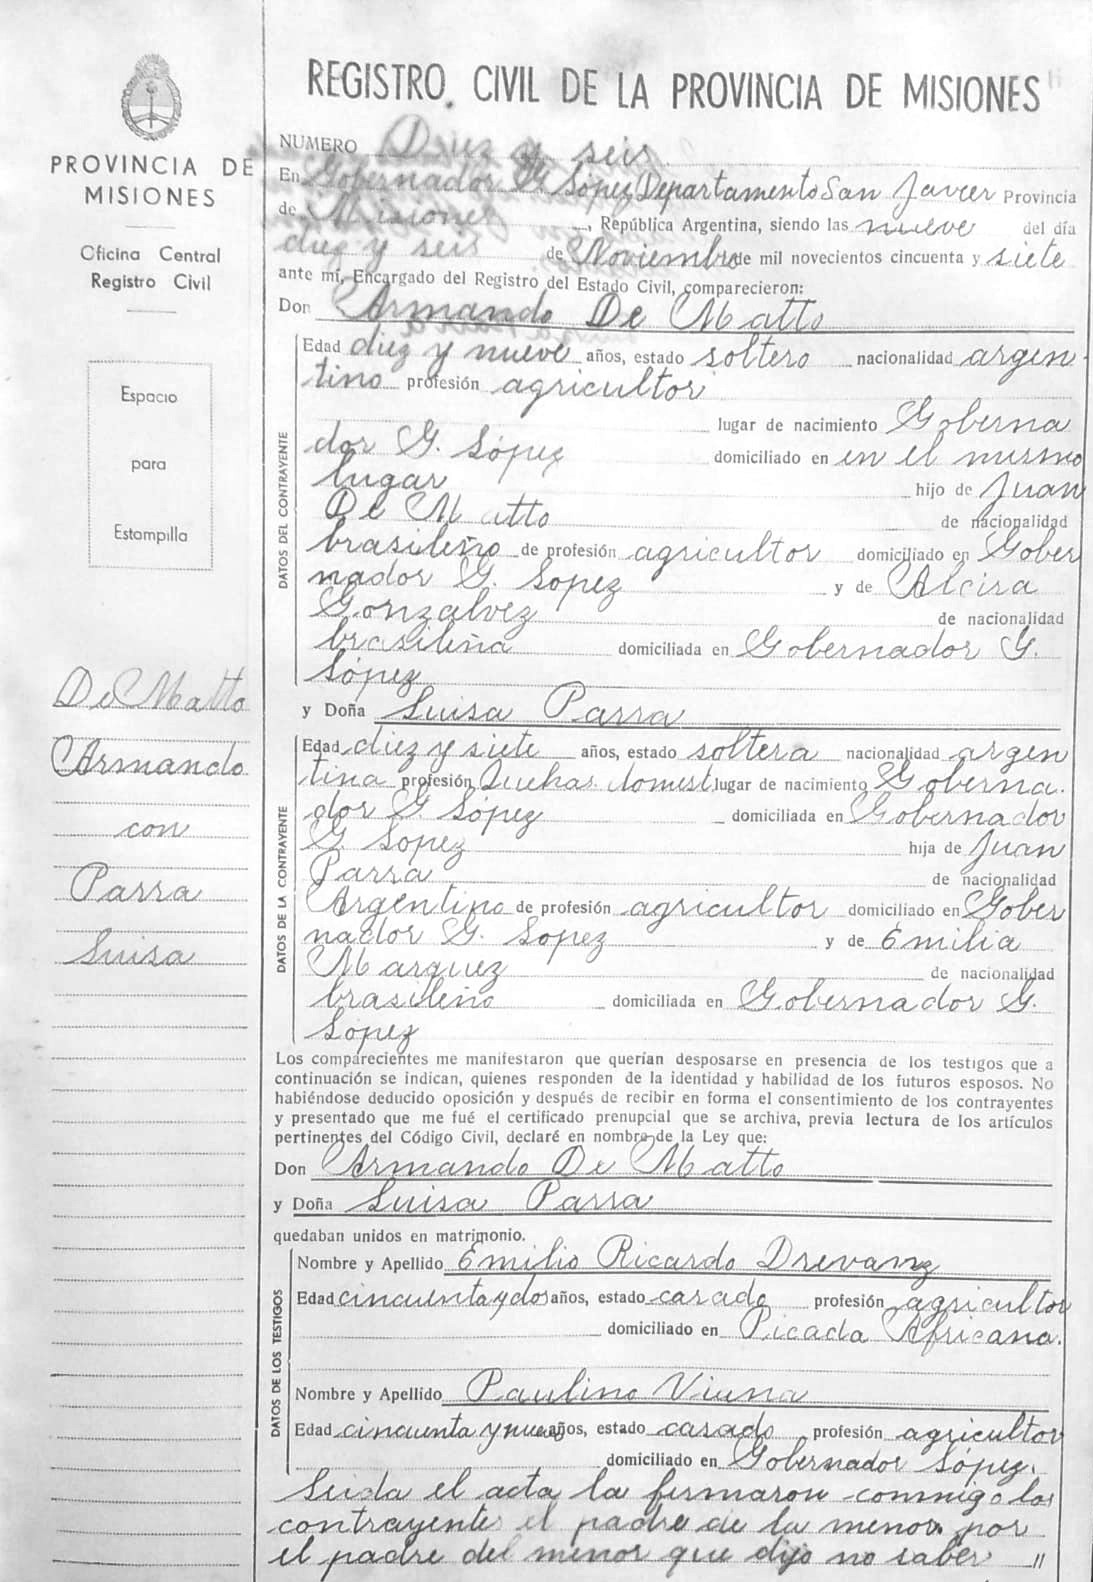 REGISTRO CIVIL DE LA PROVINCIA DE MISIONES
PROVINCIA DE
MISIONES
Oficina Central
Registro Civil
Espacio
para
Estampilla
De Matto
Armando
con
Parra
Luisa
NUMERO Diez y seis
En Gobernador G. López Departamento San Javier Provincia
de Misiones, República Argentina, siendo las nueve del día
diez y seis de Noviembre de mil novecientos cincuenta y siete
ante mí, Encargado del Registro del Estado Civil, comparecieron:
Don Armando De Matto
DATOS DEL CONTRAYENTE
Edad diez y nueve años, estado soltero nacionalidad argen
tino profesión agricultor
lugar de nacimiento Goberna
dor G. López domiciliado en en el mismo
lugar hijo de Juan
De Matto de nacionalidad
brasileño de profesión agricultor domiciliado en Gober
nador G. Lopez y de Alcira
Gonzalvez de nacionalidad
brasileña domiciliada en Gobernador G.
López
y Doña Luisa Parra
DATOS DE LA CONTRAYENTE
Edad diez y siete años, estado soltera nacionalidad argen
tina profesión Quehas. domest. lugar de nacimiento Goberna.
dor G. López domiciliada en Gobernador
G. Lopez hija de Juan
Parra de nacionalidad
Argentino de profesión agricultor domiciliado en Gober
nador G. Lopez y de Emilia
Marquez de nacionalidad
brasileño domiciliada en Gobernador G.
López
Los comparecientes me manifestaron que querían desposarse en presencia de los testigos que a
continuación se indican, quienes responden de la identidad y habilidad de los futuros esposos. No
habiéndose deducido oposición y después de recibir en forma el consentimiento de los contrayentes
y presentado que me fué el certificado prenupcial que se archiva, previa lectura de los artículos
pertinentes del Código Civil, declaré en nombre de la Ley que:
Don Armando De Matto
y Doña Luisa Parra
quedaban unidos en matrimonio.
DATOS DE LOS TESTIGOS
Nombre y Apellido Emilio Ricardo Drevanz
Edad cincuenta y dos años, estado casado profesión agricultor
domiciliado en Picada Africana.
Nombre y Apellido Paulino Viuna
Edad cincuenta y nueve años, estado casado profesión agricultor
domiciliado en Gobernador López.
Leida el acta la firmaron conmigo los
contrayentes el padre de la menor, por
el padre del menor que dijo no saber "